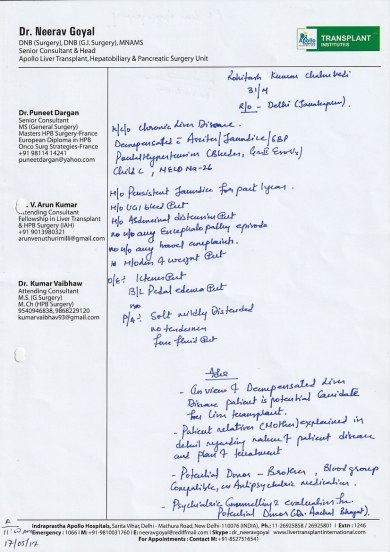 Dr. Neerav Goyal
DNB (Surgery), DNB (G.I. Surgery), MNAMS
Senior Consultant & Head
Apollo Liver Transplant, Hepatobiliary & Pancreatic Surgery Unit
Apollo
TRANSPLANT
INSTITUTES
Kumar
31/M
R/O - Delhi
Dr. Puneet Dargan
Senior Consultant
MS (General Surgery)
Masters HPB Surgery-France
European Diploma in HPB
Onco Surg Strategies-France
+91 98114 14241
puneetdargan@yahoo.com
V. Arun Kumar
Attending Consultant
Fellowship in Liver Transplant
& HPB Surgery (IAH)
+91 9013980321
arunvenuthurimilli@gmail.com
Dr. Kumar Vaibhaw
Attending Consultant
M.S. (G Surgery)
M.Ch (HPB Surgery)
9540946838, 9868229120
kumarvaibhav93@gmail.com
K/C/O Chronic Liver Disease
Decompensated c Ascites/Jaundice/SBP
Portal Hypertension (Bleeder,
Child C, MELD Na-26
H/O Persistent Jaundice for past 1 year.
H/O UGI bleed Pret
H/O Abdominal distension Pret
no H/O any Encephalopathy episode
no H/O any bowel complaints.
weight Pret
O/E: Icterus Pret
B/L Pedal edema Pret
P/A: Soft mildly Distended
no tenderness
free fluid Pret
Adv
- In view of Decompensated Liver
Disease patient is potential Candidate
for Liver transplant.
- Patient relatives (Mother) explained in
detail regarding nature of patient disease
and plan of treatment
- Potential Donor - Brother, Blood group
Compatible, on Antipsychotic medication.
- Psychiatric Counselling & evaluation for
Potential Donor
17/05/17
Indraprastha Apollo Hospitals, Sarita Vihar, Delhi - Mathura Road, New Delhi-110076 (INDIA), Ph.: 11-26925858 / 26925801 | Extn :1246
Emergency : 1066 | M: +91 9810031760 | E: neeravgoyal@rediffmail.com | Skype : dr_neeravgoyal | www.livertransplantsurgeryindia.com
For Appointments : Contact M: +91-8527516541